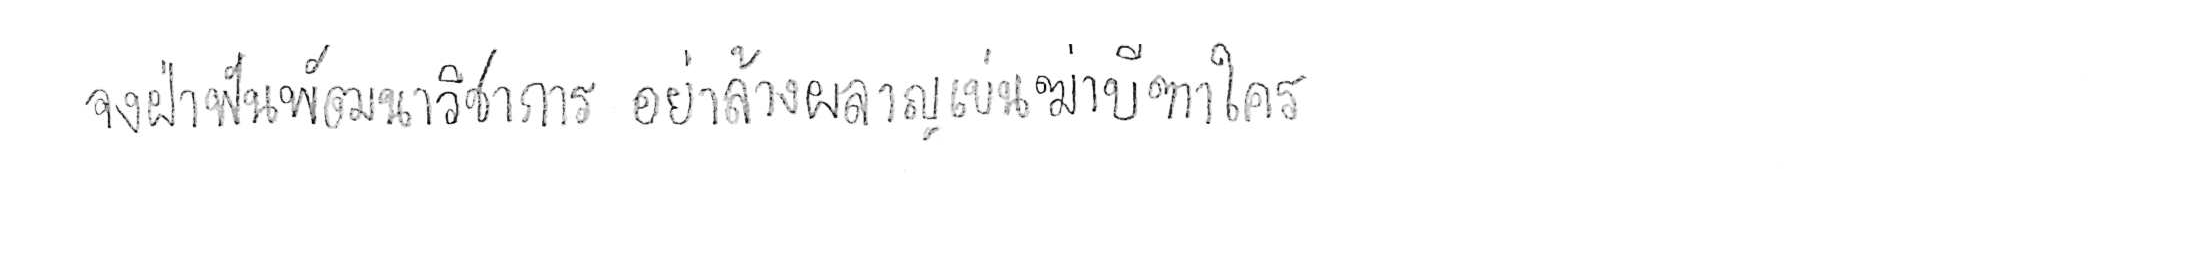 จงฝ่าฟันพัฒนาวิชาการ อย่าล้างผลาญเข่นฆ่าบีฑาใคร